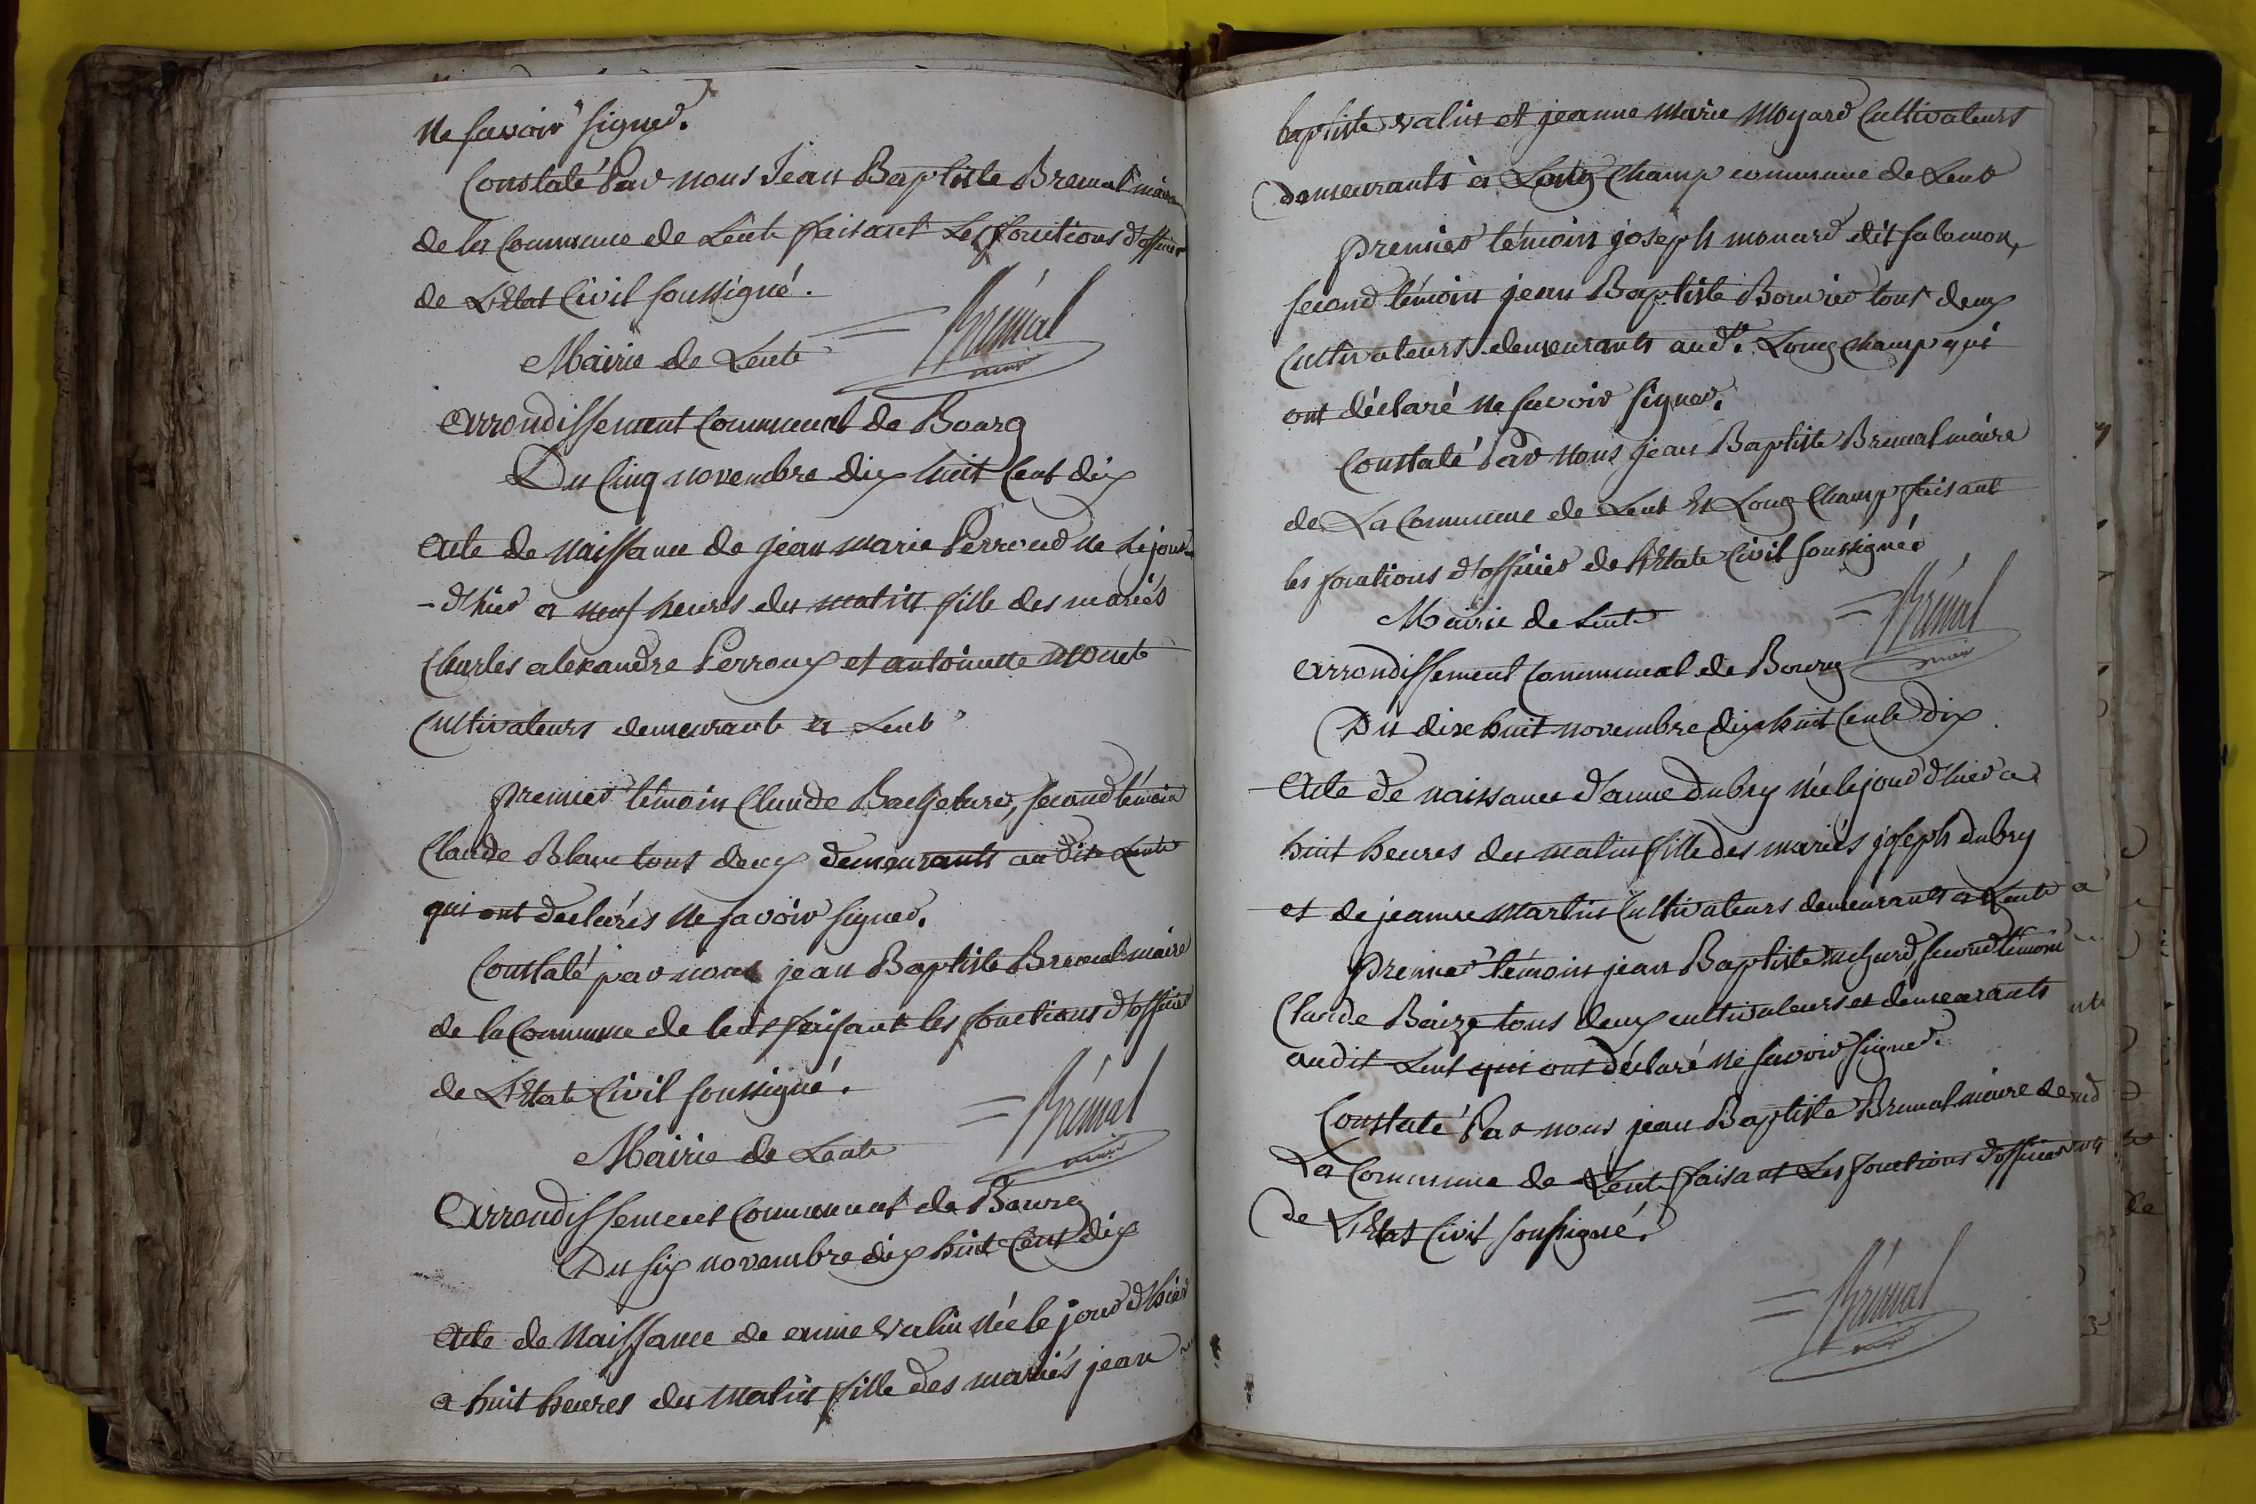 ne savoir signer.
Constaté Par nous Jean Baptiste Bremal maire
de la Commune de Lent faisant Les fonctions d'officier
de L'Etat Civil soussigné.
= Brémal
maire
Mairie de Lent
arrondissement Communal de Bourg
Du Cinq novembre dix huit Cent dix
Acte de Naissance de jean marie Perroud né le jour
- d'hier a neuf heures du matin fille des mariés
Charles alexandre Perroux et antoinette
Cultivateurs demeurant a Lent
premier témoin Claude second témoin
Claude Blanc tous deux demeurants au dit Lent
qui ont declarés ne savoir signer.
Constaté par nous jean Baptiste Bremal maire
de la Commune de lent faisant les fonctions d'officier
de L'Etat Civil soussigné.
= Brémal
maire
Mairie de Lent
Arrondissement Communal de Bourg
Du six novembre dix huit Cent dix
Acte de Naissance de anne valin née le jour d'hier
a huit heures du matin fille des mariés jean
baptiste valin et jeanne marie moyard Cultivateurs
demeurants à Long Champ commune de Lent
premier témoin joseph monard dit salomon,
second témoin jean Baptiste Bouvier tous deux
Cultivateurs demeurants aud.t Long champ qui
ont déclaré ne savoir signer.
Constaté Par Nous jean Baptiste Bremal maire
de La Commune de Lent Et Long Champ faisant
les fonctions d'officier de l'Etat Civil soussigné
= Brémal
maire
Mairie de Lent
arrondissement Communal de Bourg
Du dix huit novembre dix huit Cent Dix
Acte de naissance d'anne dubry née le jour d'hier a
huit heures du matin fille des mariés joseph dubry
et de jeanne Martin Cultivateurs demeurants a Lent
premier témoin jean Baptiste second témoin
Claude Baize tous deux cultivateurs et demeurants
audit Lent qui ont déclaré ne savoir signer.
Constaté Par nous jean Baptiste Bremal maire de
La Commune de Lent faisant Les fonctions d'officier
de L'Etat Civil soussigné.
= Brémal
maire